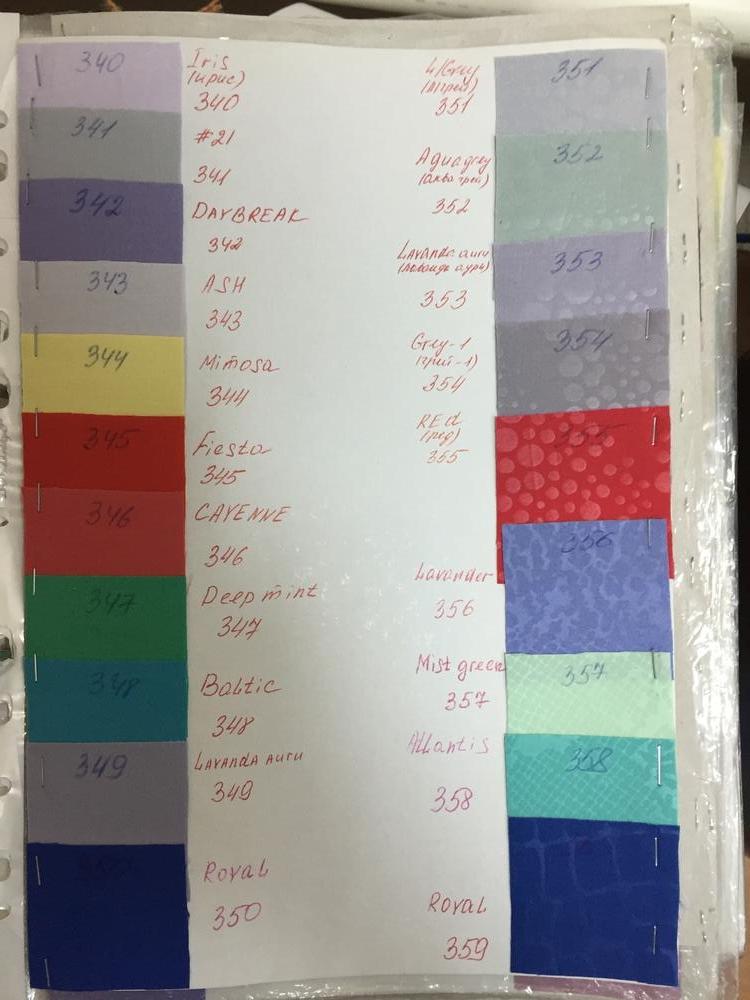 340
Iris
(ирис)
340
341
#21
341
342
DAYBREAK
342
343
ASH
343
344
Mimosa
344
345
Fiesta
345
346
CAYENNE
346
347
Deep mint
347
348
Baltic
348
349
LAVANDA AURU
349
ROYAL
350
L/Grey
351
351
Aguagrey
(аква грей)
352
352
LAVANda auru
(лаванда аури)
353
353
Grey-1
(грей-1)
354
354
REd
(ред)
355
355
Lavander
356
356
Mist green
357
357
Atlantis
358
358
ROYAL
359